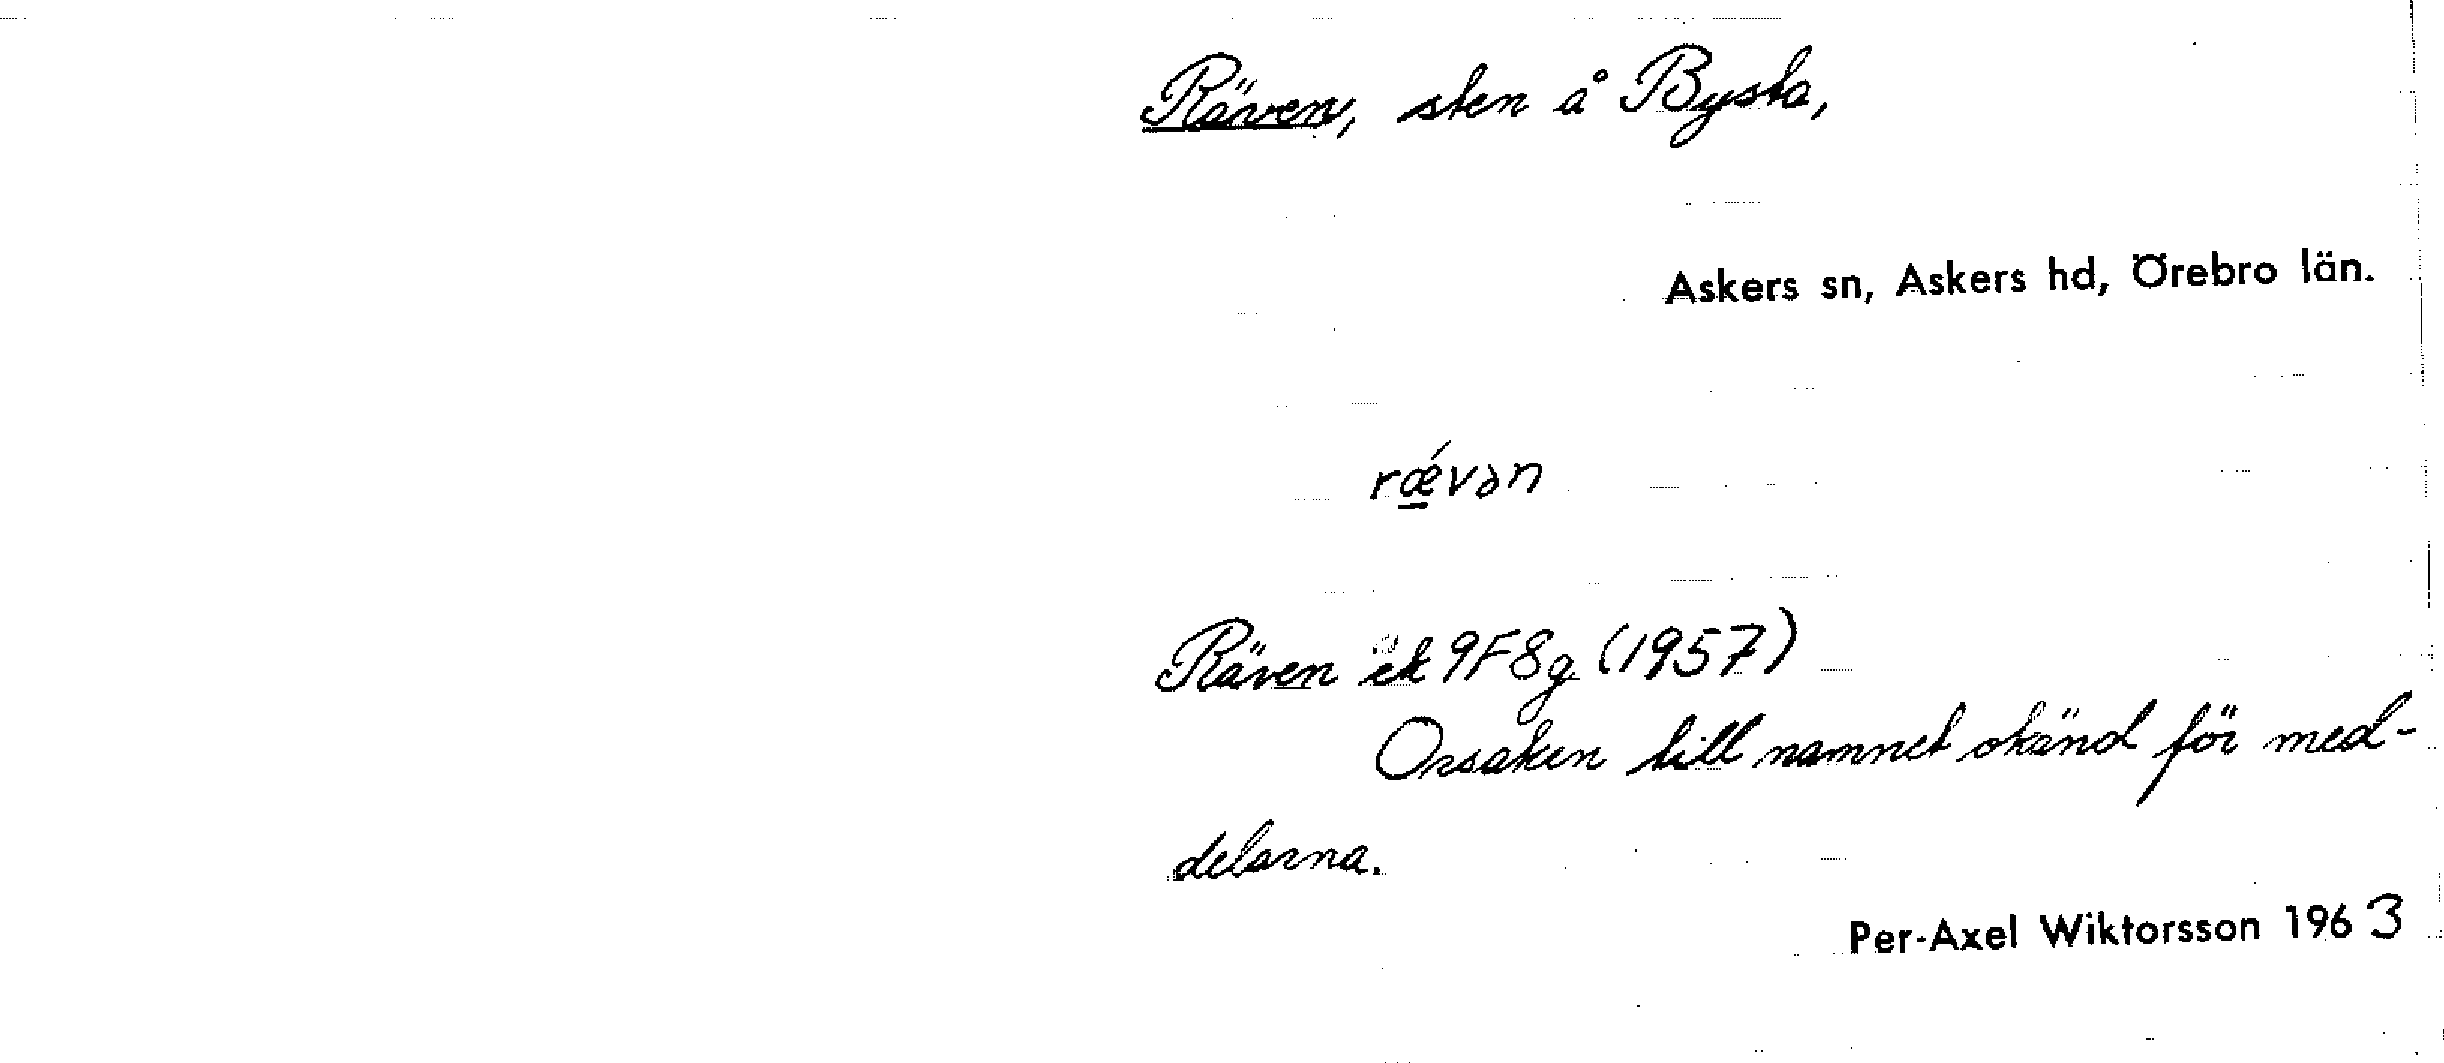 Räven, sten å Bysta,
Askers sn, Askers hd, Örebro län.
rǽvən
Räven ek 9F8g (1957)
Orsaken till namnet okänd för med-
delarna.
Per-Axel Wiktorsson 1963